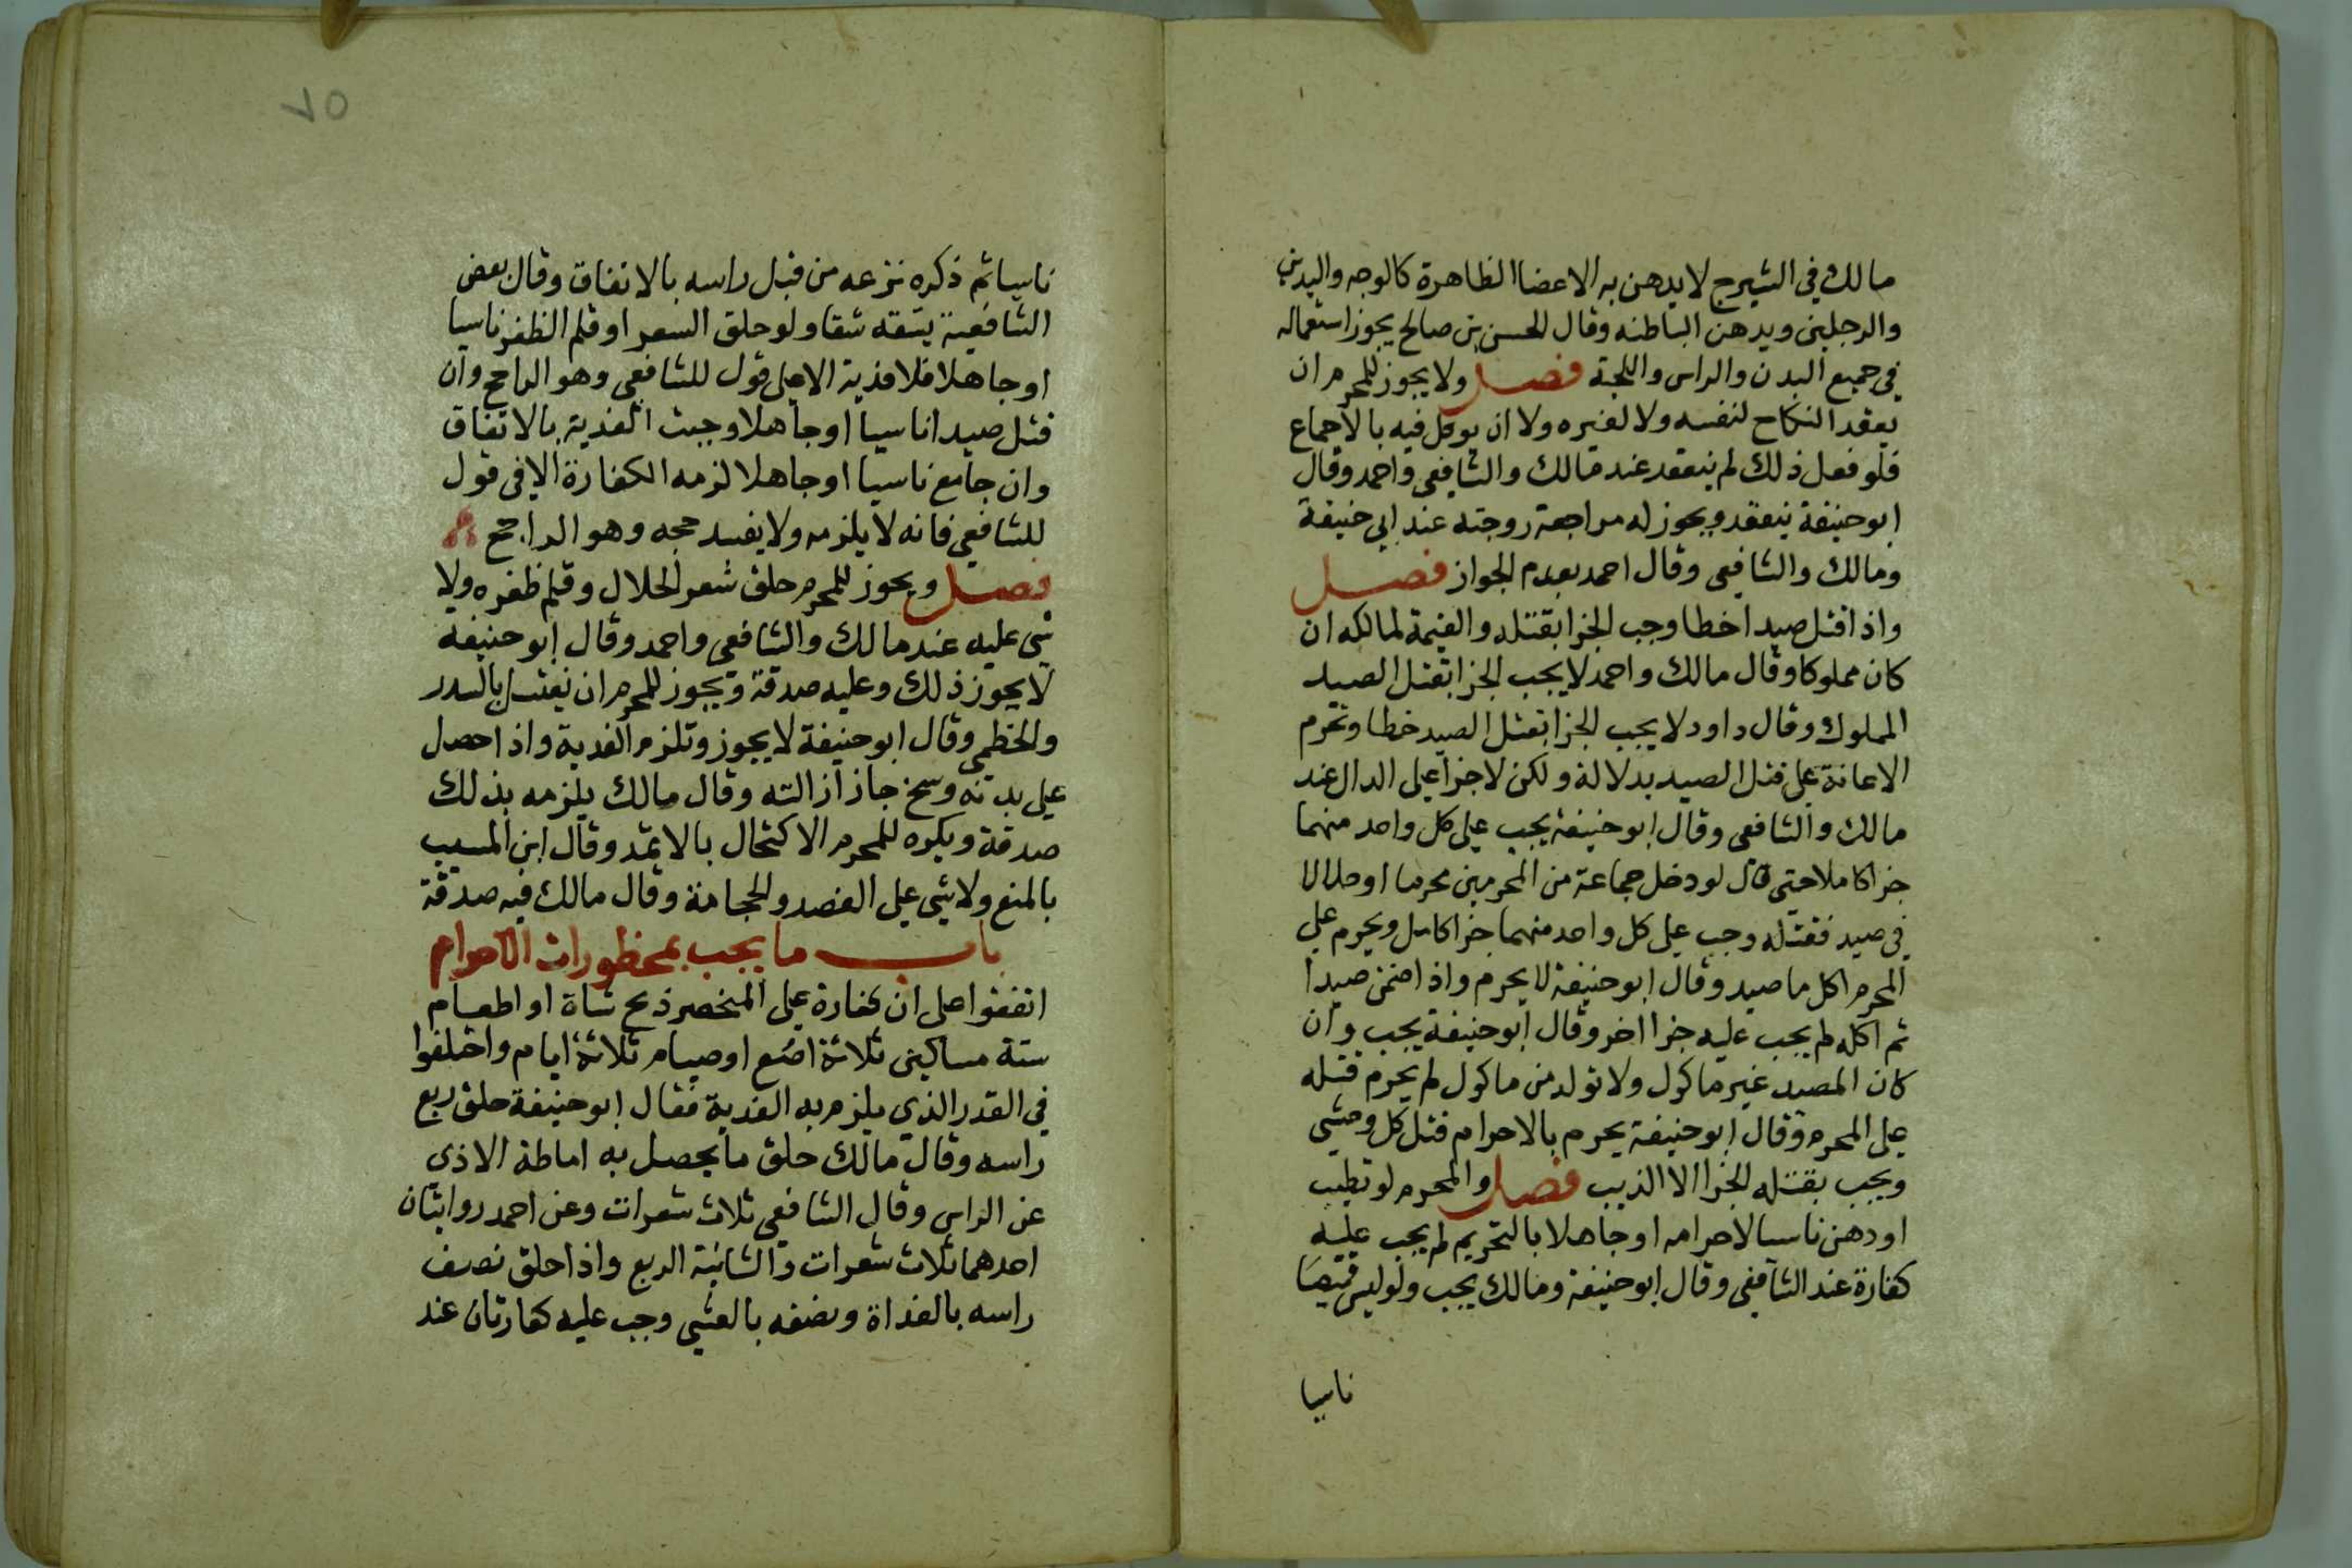 مالك في الشيرج لا يدهن به الاعضا الظاهرة كالوجه واليدين
والرجلين ويدهن الباطنه وقال الحسن بن صالح يجوز استعماله
في جميع البدن والراس واللحية فصل ولا يجوز للمحرم ان
يعقد النكاح لنفسه ولا لغيره ولا ان يوكل فيه بالاجماع
فلو فعل ذلك لم ينعقد عند مالك والشافعي واحمد وقال
ابو حنيفة ينعقد ويجوز له مراجعة زوجته عند ابي حنيفة
ومالك والشافعي وقال احمد بعدم الجواز فصل
واذا قتل صيدا خطا وجب الجزا بقتله والقيمة لمالكه ان
كان مملوكا وقال مالك واحمد لا يجب الجزا بقتل الصيد
المملوك وقال داود لا يجب الجزا بقتل الصيد خطا وتحرم
الاعانة على قتل الصيد بدلالة ولكن لا جزا على الدال عند
مالك والشافعي وقال ابو حنيفة يجب على كل واحد منهما
جزا كاملا حتى قال لو دخل جماعة من المحرمين محرما او حلالا
في صيد فقتله وجب على كل واحد منهما جزا كامل ويحرم على
المحرم اكل ما صيد وقال ابو حنيفة لا يحرم واذا ضمن صيدا
ثم اكله لم يجب عليه جزا اخر وقال ابو حنيفة يجب وان
كان المصيد غير ماكول ولا تولد من ماكول لم يحرم قتله
على المحرم وقال ابو حنيفة يحرم بالاحرام قتل كل وحشي
ويجب بقتله الجزا الا الذيب فصل والمحرم لو تطيب
او دهن ناسيا لاحرامه او جاهلا بالتحريم لم يجب عليه
كفارة عند الشافعي وقال ابو حنيفة ومالك يجب ولو لبس قميصا
ناسيا
٧٥
ناسيا ثم ذكره نزعه من قبل راسه بالاتفاق وقال بعض
الشافعية يشقه شقا ولو حلق الشعر او قلم الظفر ناسيا
او جاهلا فلا فدية الا على قول للشافعي وهو الراجح وان
قتل صيدا ناسيا او جاهلا وجبت الفدية بالاتفاق
وان جامع ناسيا او جاهلا لزمه الكفارة الا في قول
للشافعي فانه لا يلزمه ولا يفسد حجه وهو الراجح
فصل ويجوز للمحرم حلق شعر الحلال وقلم ظفره ولا
شي عليه عند مالك والشافعي واحمد وقال ابو حنيفة
لا يجوز ذلك وعليه صدقة ويجوز للمحرم ان يغتسل بالسدر
والخطمي وقال ابو حنيفة لا يجوز وتلزم الفدية واذا حصل
على بدنه وسخ جاز ازالته وقال مالك يلزمه بذلك
صدقة ويكره للمحرم الاكتحال بالاثمد وقال ابن المسيب
بالمنع ولا شي على الفصد والحجامة وقال مالك فيه صدقة
باب ما يجب بمحظورات الاحرام
اتفقوا على ان كفارة على ذبح شاة او اطعام
ستة مساكين ثلاثة اصع او صيام ثلاثة ايام واختلفوا
في القدر الذي يلزم به الفدية فقال ابو حنيفة حلق ربع
راسه وقال مالك حلق ما يحصل به اماطة الاذي
عن الراس وقال الشافعي ثلاث شعرات وعن احمد روايتان
احدهما ثلاث شعرات والثانية الربع واذا حلق نصف
راسه بالغداة ونصفه بالعشي وجب عليه كفارتان عند